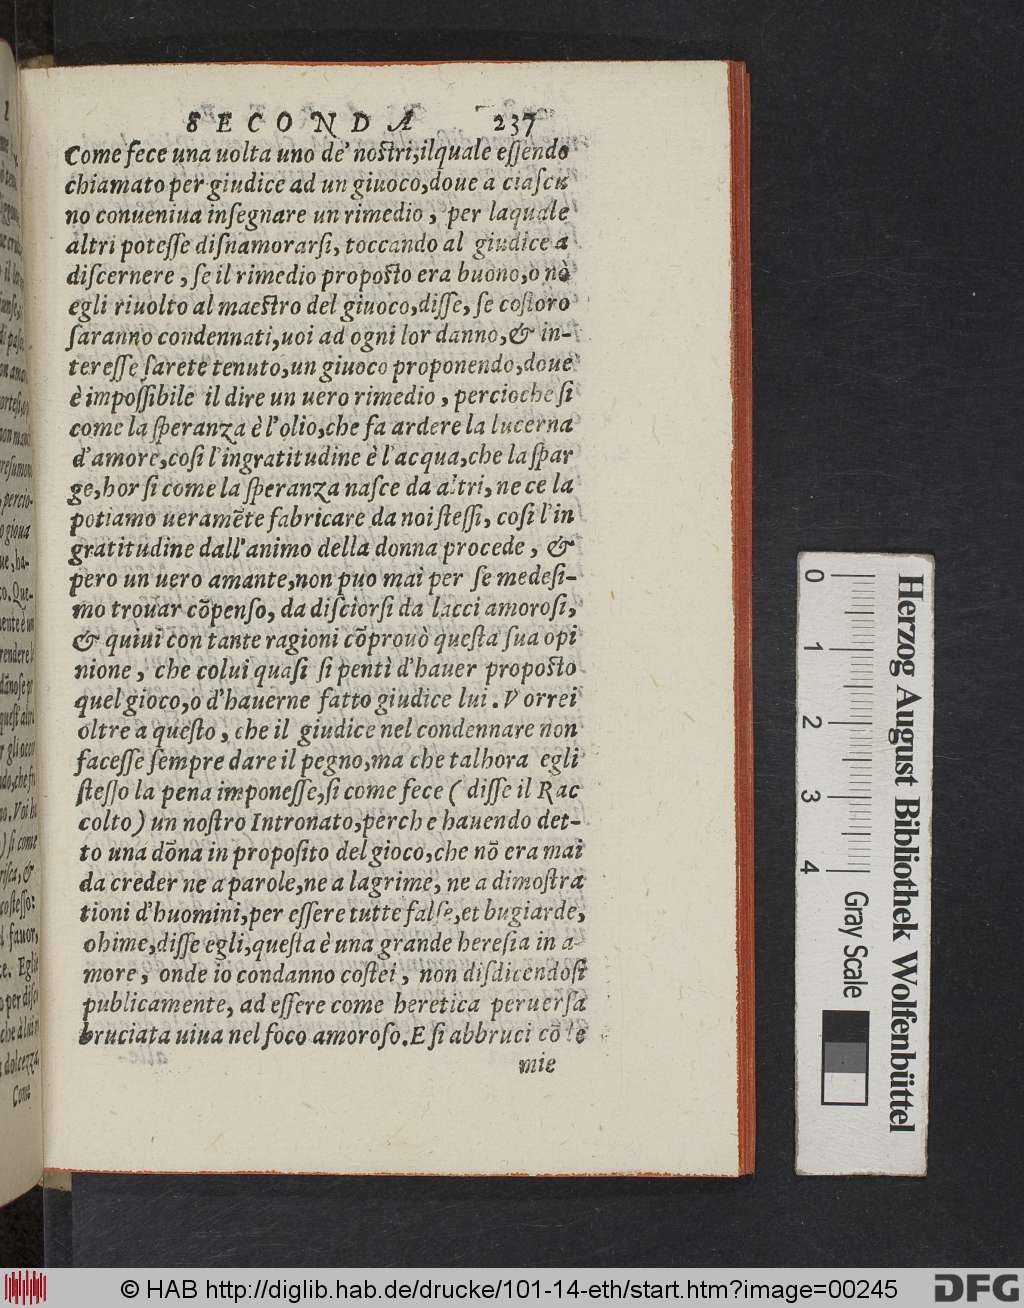 SECONDA 237
Come fece una uolta uno de' nostri, ilquale essendo
chiamato per giudice ad un giuoco, doue a ciascu
no conueniua insegnare un rimedio, per laquale
altri potesse disnamorarsi, toccando al giudice a
discernere, se il rimedio proposto era buono, o nò
egli riuolto al maestro del giuoco, disse, se costoro
saranno condennati, uoi ad ogni lor danno, & in-
teresse sarete tenuto, un giuoco proponendo, doue
è impossibile il dire un uero rimedio, percioche si
come la speranza è l'olio, che fa ardere la lucerna
d'amore, cosi l'ingratitudine è l'acqua, che la spar
ge, hor si come la speranza nasce da altri, ne ce la
potiamo ueramẽte fabricare da noi stessi, cosi l'in
gratitudine dall'animo della donna procede, &
pero un uero amante, non puo mai per se medesi-
mo trouar cõpenso, da disciorsi da lacci amorosi,
& quiui con tante ragioni cõprouò questa sua opi
nione, che colui quasi si pentì d'hauer proposto
quel gioco, o d'hauerne fatto giudice lui. Vorrei
oltre a questo, che il giudice nel condennare non
facesse sempre dare il pegno, ma che talhora egli
stesso la pena imponesse, si come fece (disse il Rac
colto) un nostro Intronato, perche hauendo det-
to una dõna in proposito del gioco, che nõ era mai
da creder ne a parole, ne a lagrime, ne a dimostra
tioni d'huomini, per essere tutte false, et bugiarde,
ohime, disse egli, questa è una grande heresia in a
more, onde io condanno costei, non disdicendosi
publicamente, ad essere come heretica peruersa
bruciata uiua nel foco amoroso. E si abbruci cõ le
mie
0 1 2 3 4
Gray Scale
Herzog August Bibliothek Wolfenbüttel
© HAB http://diglib.hab.de/drucke/101-14-eth/start.htm?image=00245
DFG